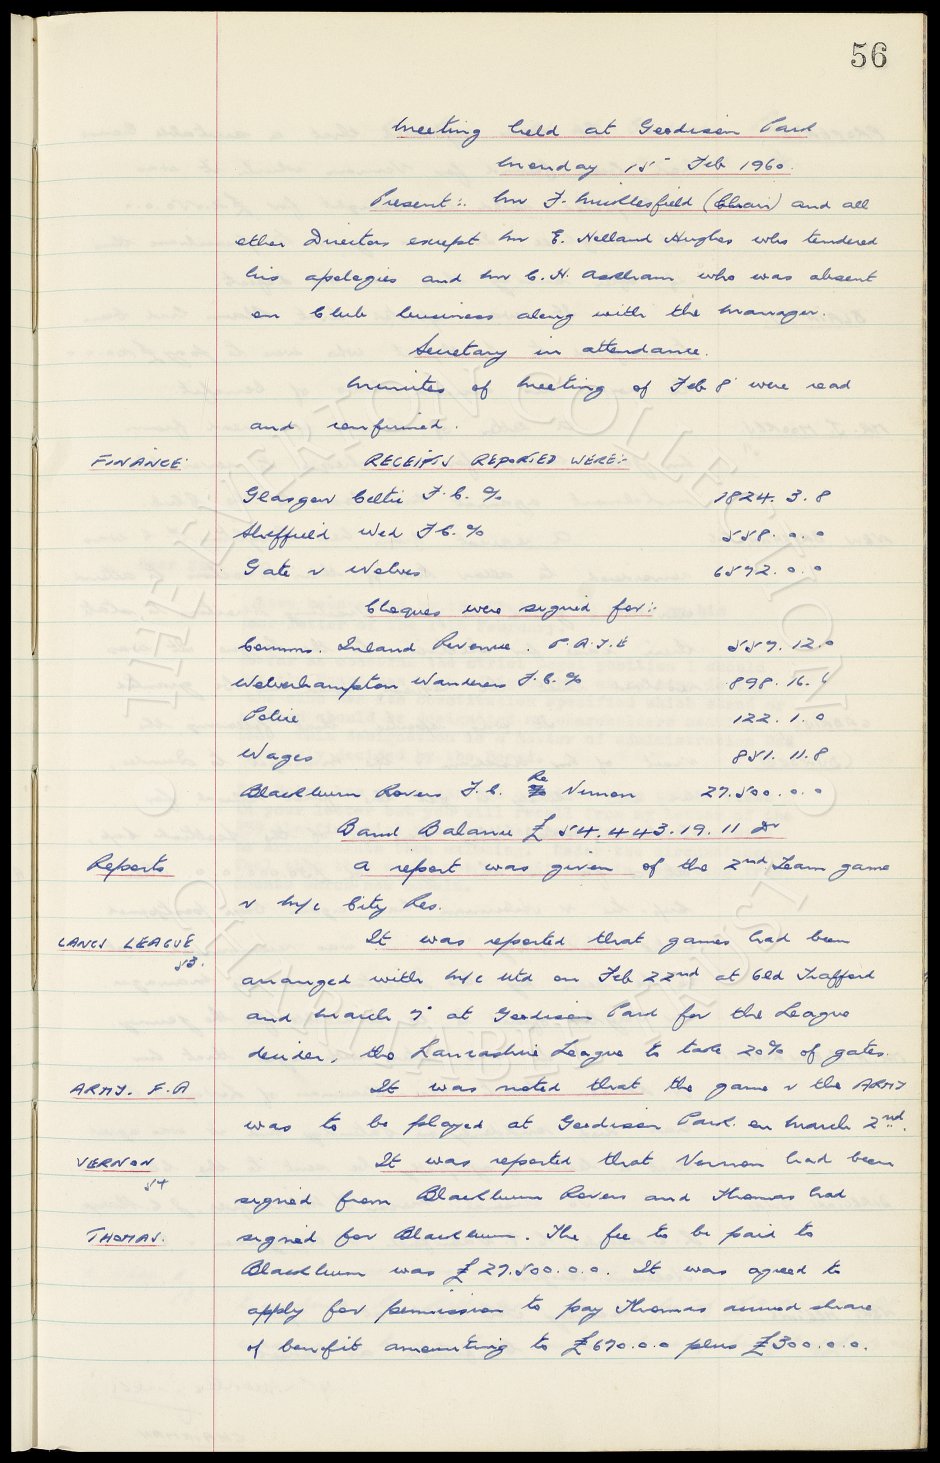 56
Meeting held at Goodison Park
Monday 15 Feb 1960.
Present:. Mr F. Micklesfield (Chair) and all
other Directors except Mr E. Holland Hughes who tendered
his apologies and Mr C. H. Askham who was absent
on Club business along with the Manager.
Secretary in attendance.
Minutes of Meeting of Feb 8 were read
and confirmed.
FINANCE RECEIPTS REPORTED WERE:-
Glasgow Celtic F.C. % 1824. 3. 8
Sheffield Wed F.C. % 558. 0. 0
Gate v Wolves 6572. 0. 0
Cheques were signed for:-
Comms. Inland Revenue. P.A.Y.E 557. 12. 0
Wolverhampton Wanderers F.C. % 898. 16. 6
Police 122. 1. 0
Wages 851. 11. 8
Blackburn Rovers F.C. Re Vernon 27.500. 0. 0
Bank Balance £ 54.443. 19. 11 Dr
Reports A report was given of the 2nd Team game
v M/c City Res.
LANCS LEAGUE It was reported that games had been
53. arranged with M/c Utd on Feb 22nd at Old Trafford
and March 7 at Goodison Park for the League
decider, the Lancashire League to take 20% of gates.
ARMY. F.A It was noted that the game v the ARMY
was to be played at Goodison Park on March 2nd.
VERNON It was reported that Vernon had been
54 signed from Blackburn Rovers and Thomas had
THOMAS. signed for Blackburn. The fee to be paid to
Blackburn was £27.500. 0. 0. It was agreed to
apply for permission to pay Thomas accrued share
of benefit amounting to £670. 0. 0 plus £300. 0. 0.
THE EVERTON COLLECTION
CHARITABLE TRUST